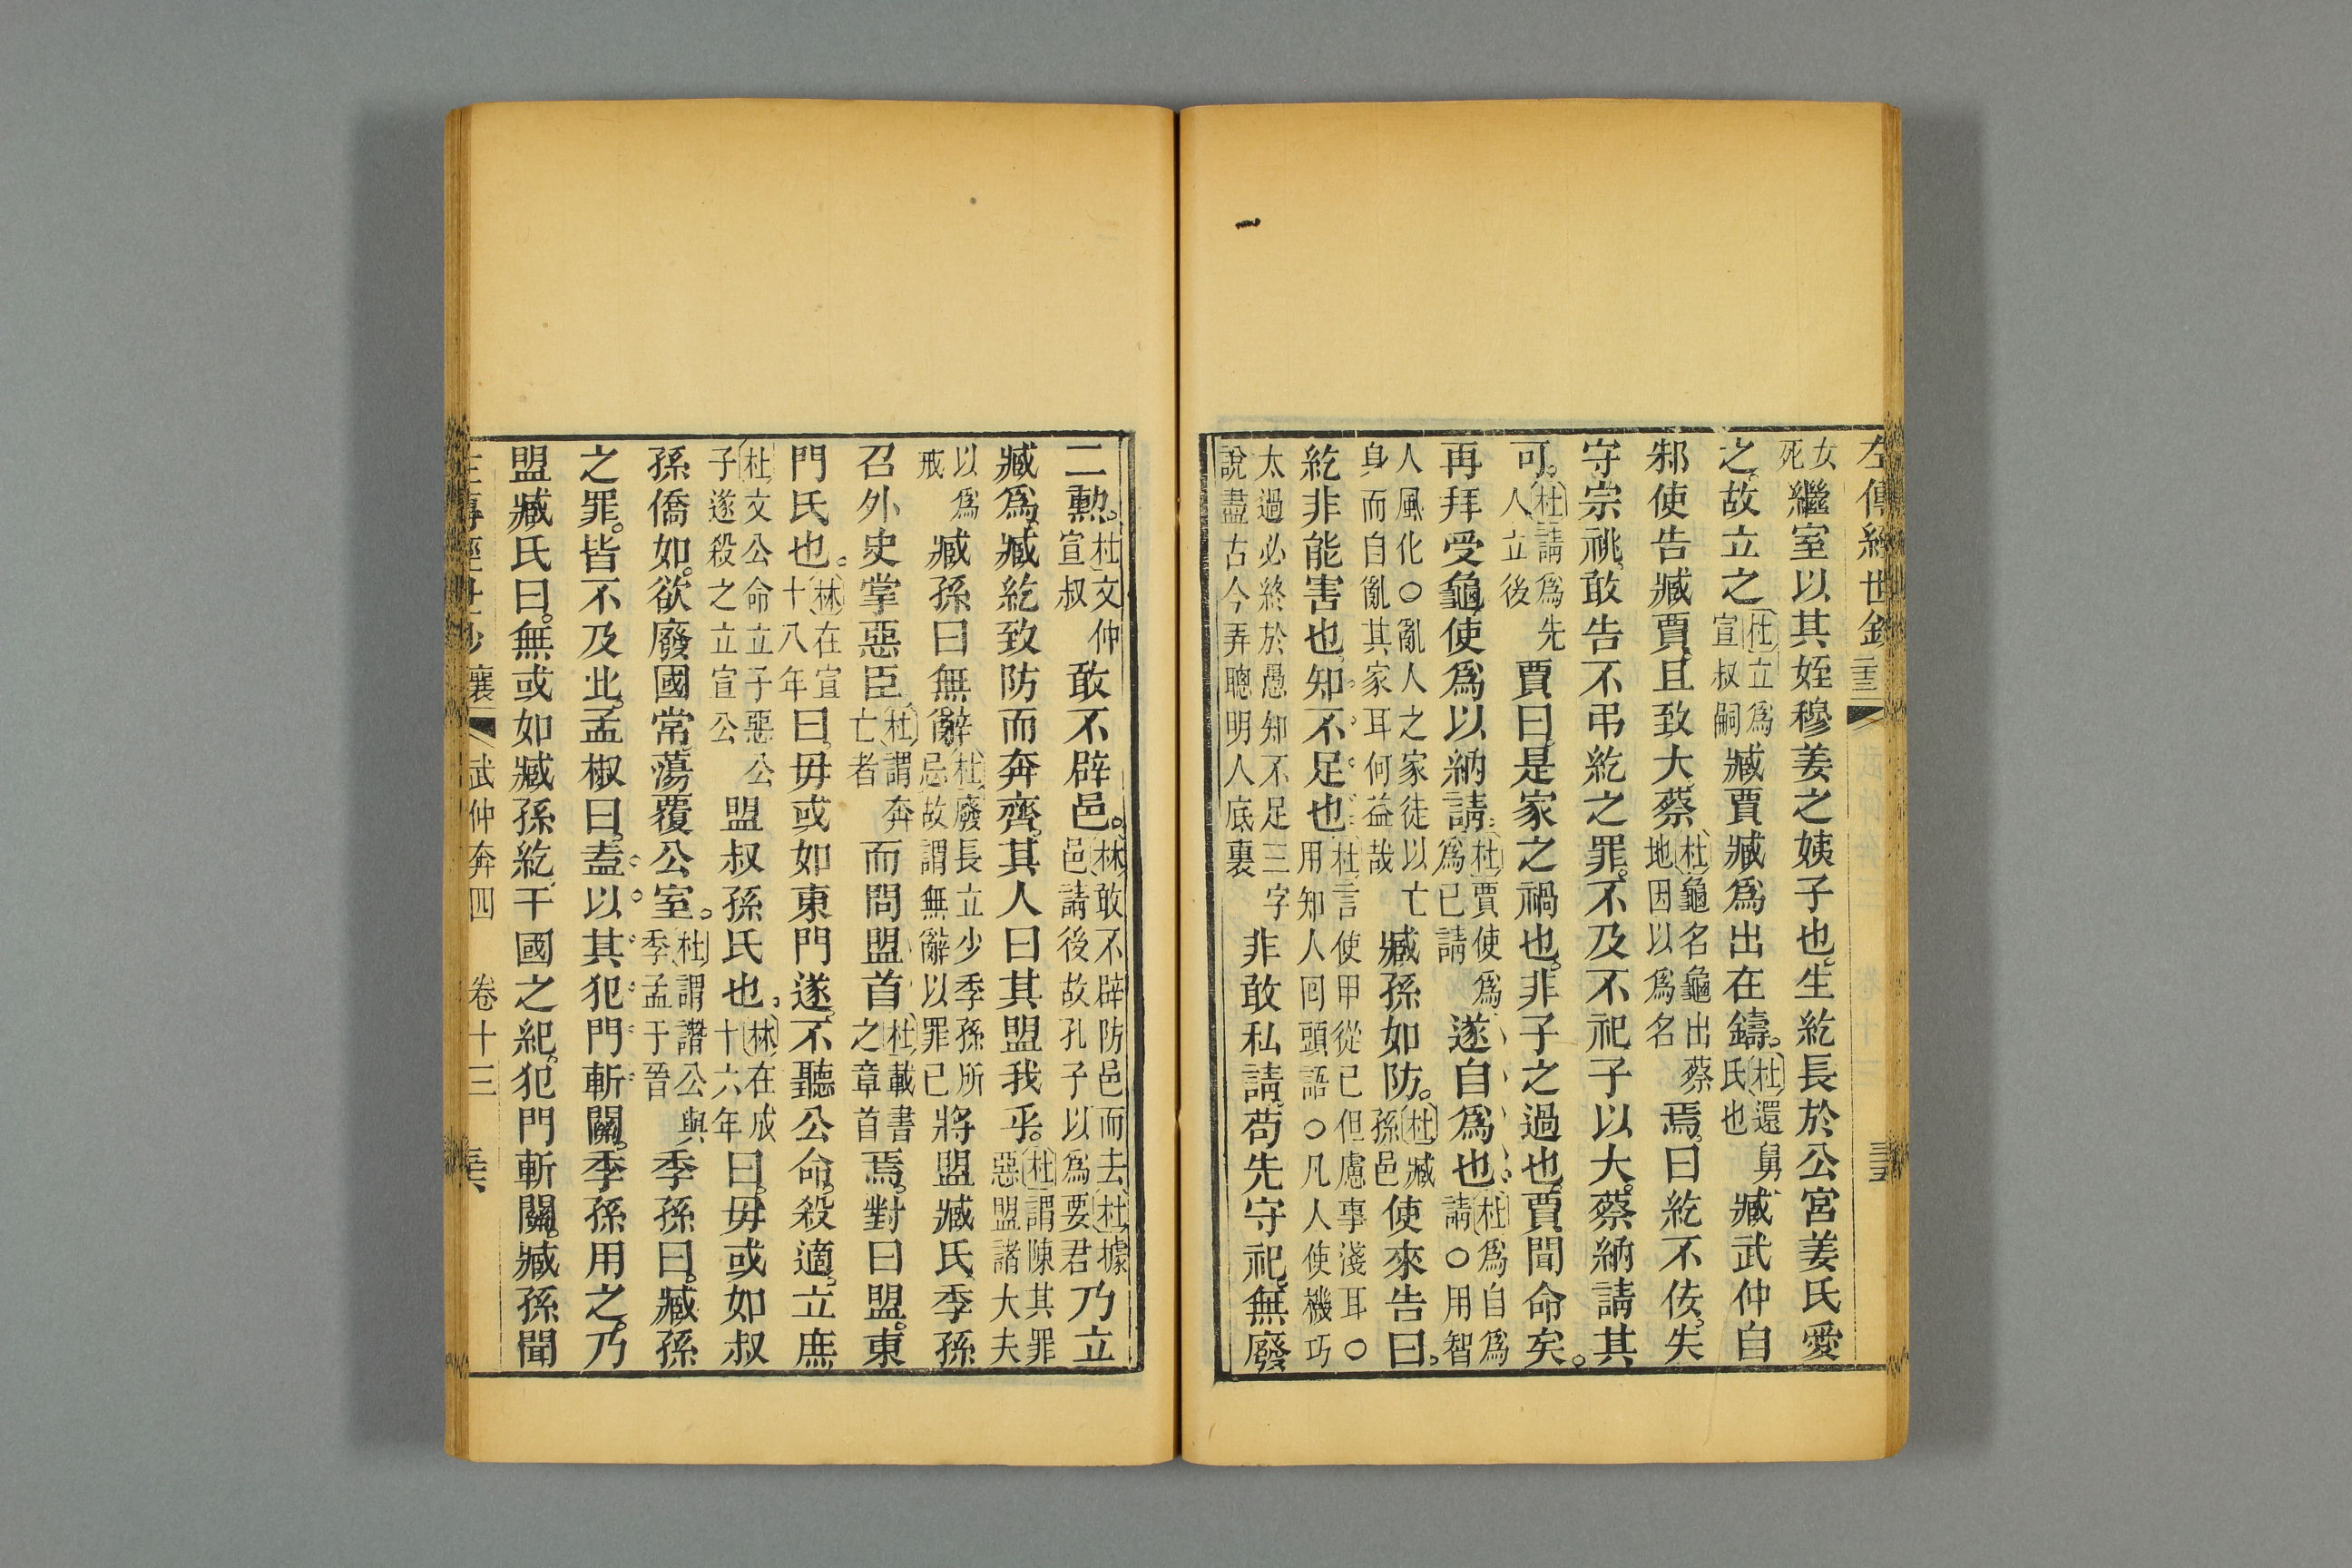 左傳經世鈔
女死繼室以其姪穆姜之姨子也。生紇長於公宮姜氏愛
之。故立之杜立爲宣叔嗣臧賈臧爲出在鑄。杜還舅氏也臧武仲自
邾使告臧賈。且致大蔡杜龜名龜出蔡地因以爲名焉。曰紇不佞。失
守宗祧。敢告不弔紇之罪。不及不祀子以大蔡納請其
可。杜請爲先人立後賈曰。是家之禍也。非子之過也。賈聞命矣。
再拜受龜。使爲以納請。杜賈使爲爲已請遂自爲也。杜爲自爲請○用智
人風化○亂人之家徒以亡身而自亂其家耳何益哉臧孫如防。杜臧孫邑使來告曰。
紇非能害也。知不足也杜言使甲從已但慮事淺耳○用知人回頭語○凡人使機巧
太過必終於愚知不足三字說盡古今弄聰明人底裏非敢私請。苟先守祀。無廢
二勳。杜文仲宣叔敢不辟邑。林敢不辟防邑而去杜據邑請後故孔子以爲要君乃立
臧爲。臧紇致防而奔齊。其人曰其盟我乎。杜謂陳其罪惡盟諸大夫
以爲戒臧孫曰無辭杜廢長立少季孫所忌故謂無辭以罪已將盟臧氏季孫
召外史掌惡臣杜謂奔亡者而問盟首杜載書之章首焉。對曰盟。東
門氏也。林在宣十八年曰。毋或如東門遂。不聽公命。殺適。立庶
杜文公命立子惡公子遂殺之立宣公盟叔孫氏也。林在成十六年曰。毋或如叔
孫僑如。欲廢國常。蕩覆公室。杜謂譖公與季孟于晉季孫曰。臧孫
之罪。皆不及此。孟椒曰。盍以其犯門斬關。季孫用之。乃
盟臧氏曰。無或如臧孫紇。干國之紀。犯門斬關。臧孫聞
襄 武仲奔四 卷十三